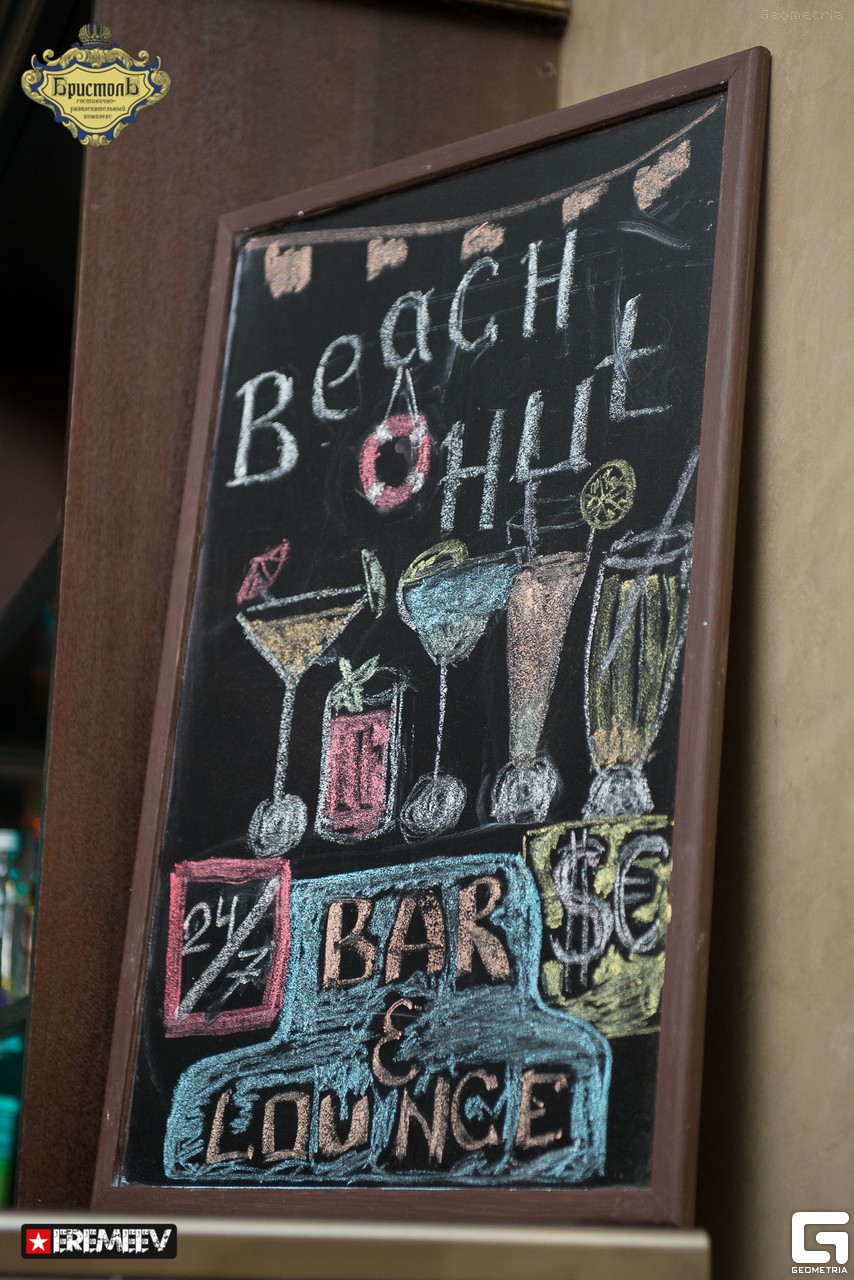 Geometria
БристолЬ
гостинично-
развлекательный
комплекс
BeacH
Hut
24/7
BAR
$€
&
LOUNGE
EREMEEV
GEOMETRIA